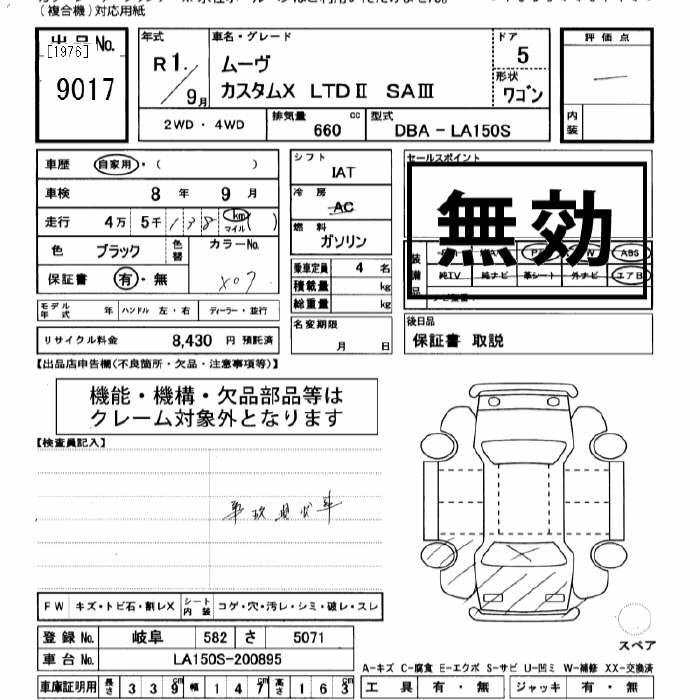 (複合機)対応用紙
出品No.
[1976]
9017
年式
R1.
9月
車名・グレード
ムーヴ
カスタムX LTDⅡ SAⅢ
ドア
5
形状
ワゴン
評価点
内装
2WD・4WD
排気量
660 cc
型式
DBA－LA150S
車歴 自家用・( )
車検 8年 9月
走行 4万 5千 138 km マイル ( )
色 ブラック 色替
カラーNo. X07
保証書 有・無
モデル年式 年 ハンドル 左・右 ディーラー・並行
リサイクル料金 8,430 円 預託済
シフト
IAT
冷房
AC
燃料
ガソリン
乗車定員 4 名
積載量 kg
総重量 kg
名変期限
月 日
セールスポイント
無効
装備品
ABS
純TV 純ナビ 革シート 外ナビ エアB
後日品
保証書 取説
【出品店申告欄(不良箇所・欠品・注意事項等)】
機能・機構・欠品部品等は
クレーム対象外となります
【検査員記入】
事故現状車
FW キズ・トビ石・割レX シート内装 コゲ・穴・汚レ・シミ・破レ・スレ
登録No. 岐阜 582 さ 5071
車台No. LA150S-200895
車庫証明用 長さ 339cm 幅 147cm 高さ 163cm
スペア
A-キズ C-腐食 E-エクボ S-サビ U-凹ミ W-補修 XX-交換済
工具 有・無 ジャッキ 有・無